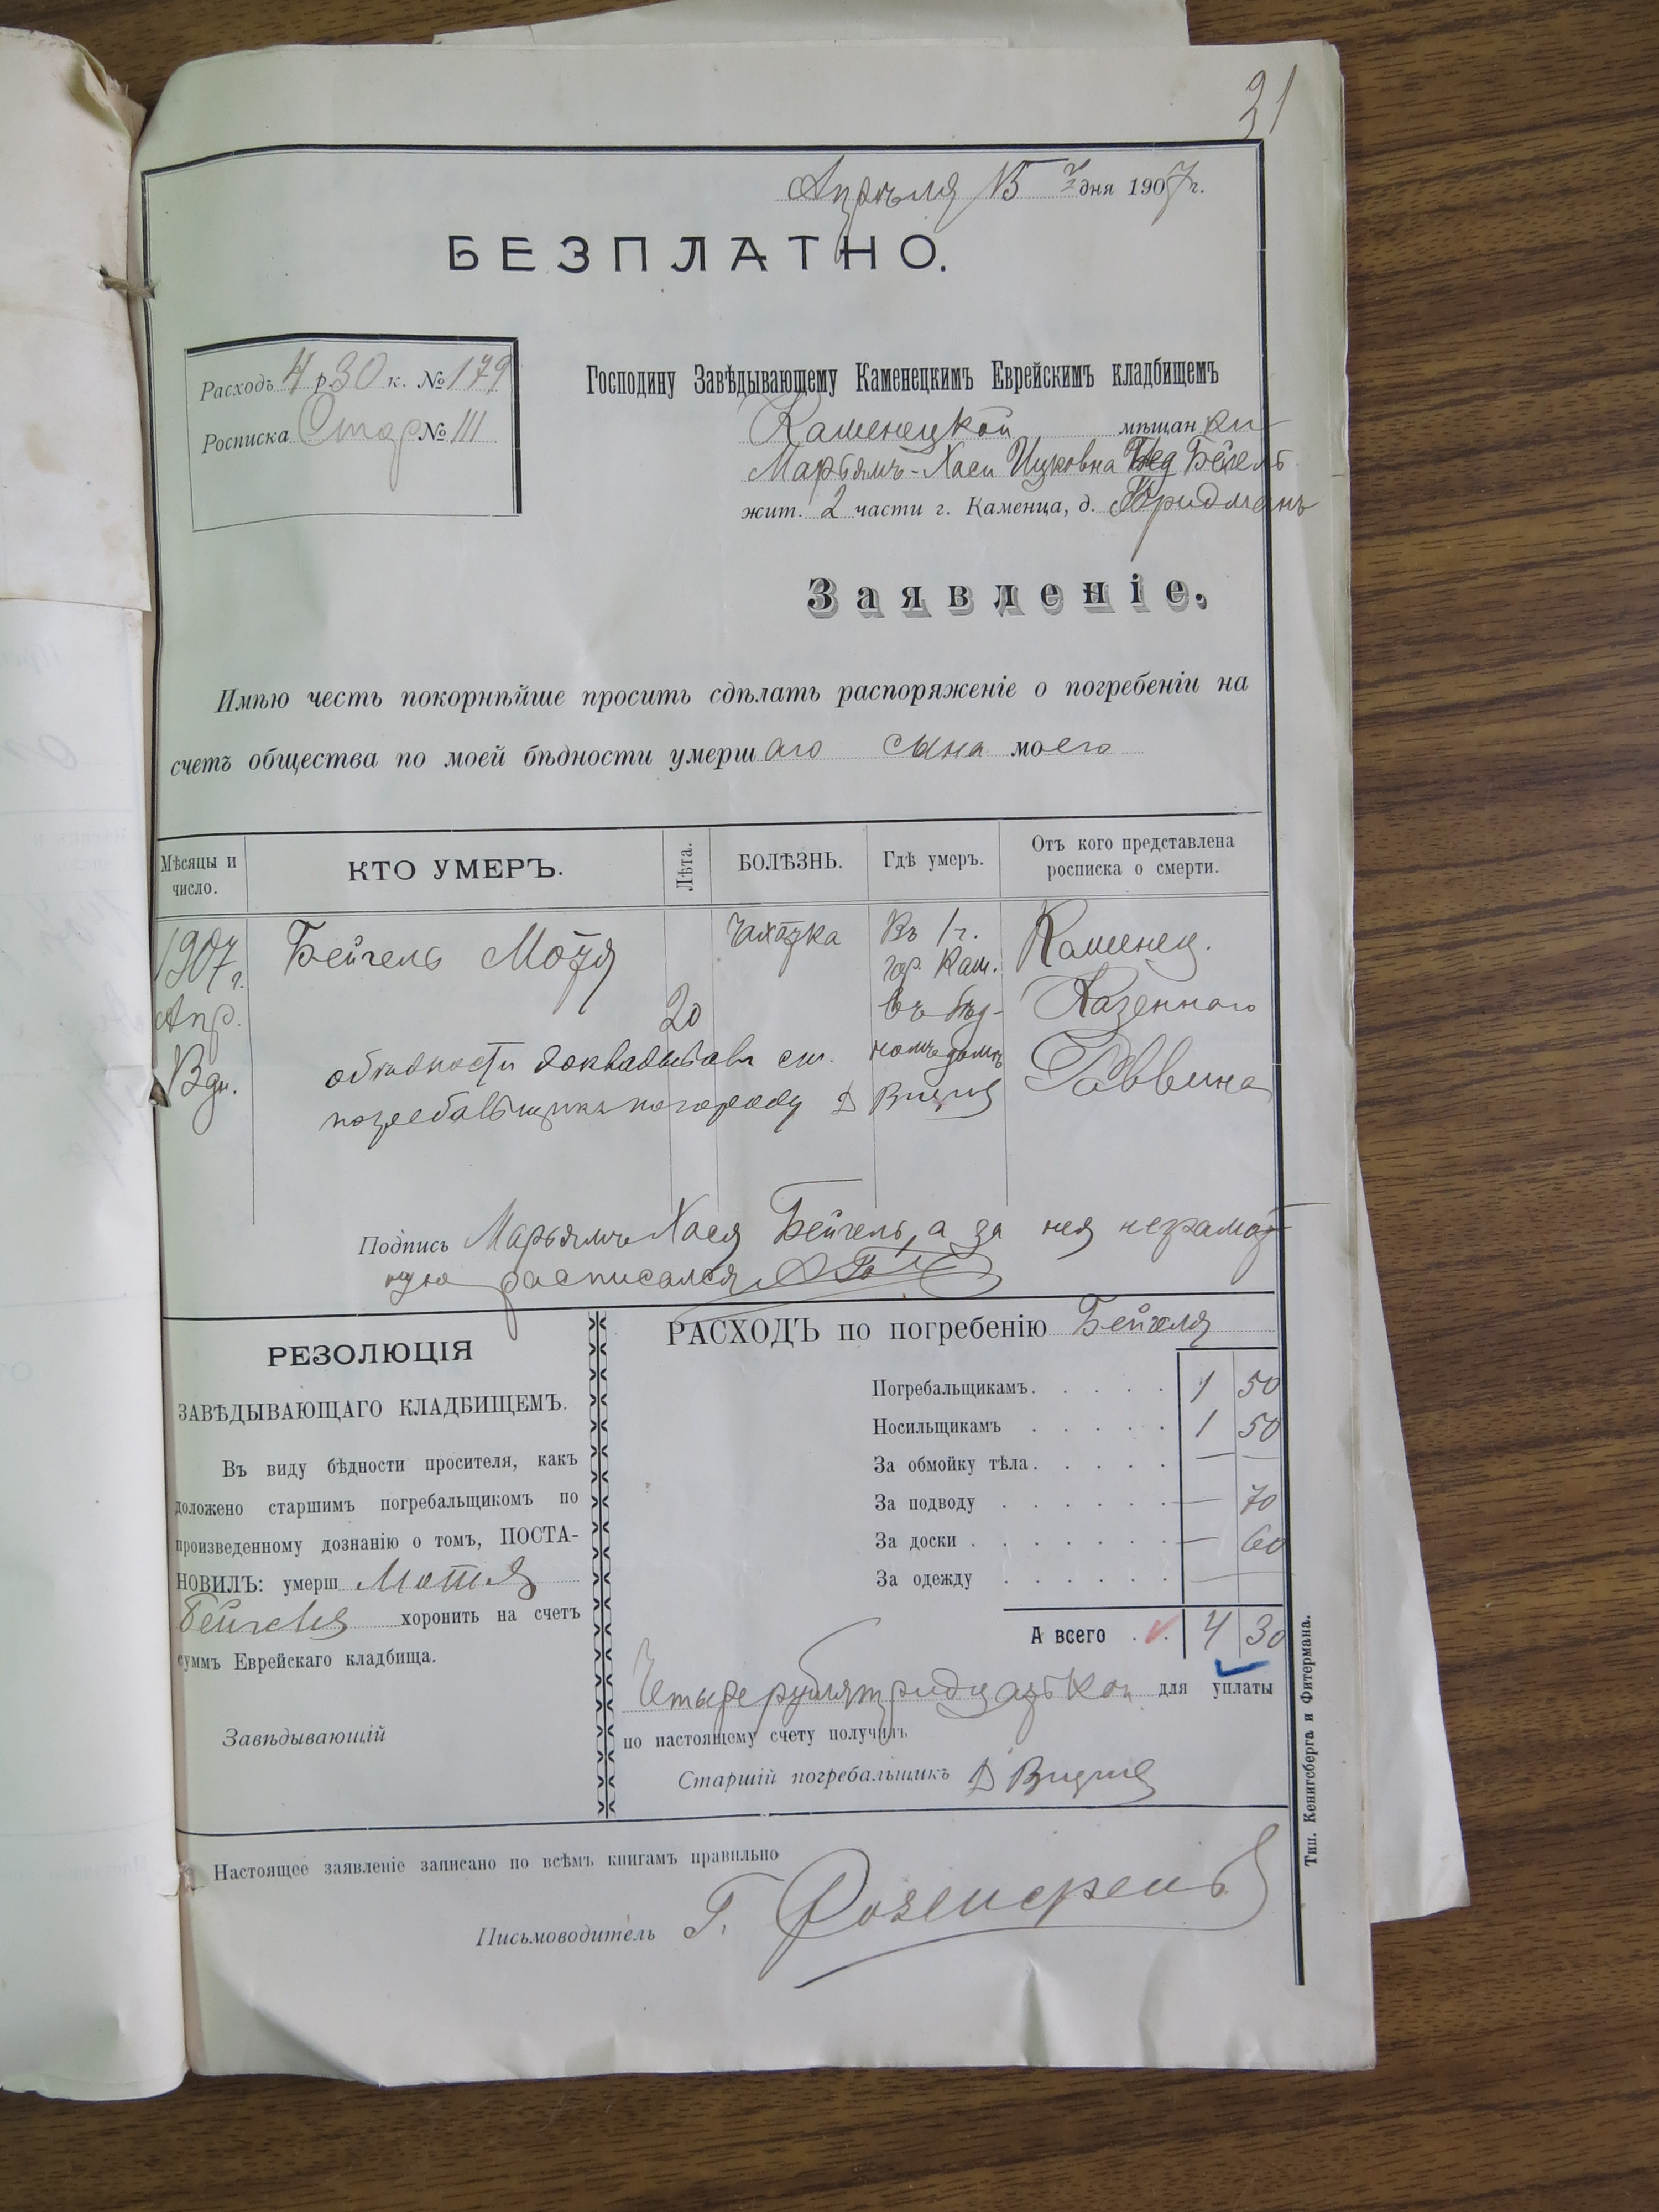 31
Апрѣля 15 дня 1907 г.
БЕЗПЛАТНО.
Расходъ 4 р. 30 к. № 179
Росписка Стар № 111
Господину Завѣдывающему Каменецкимъ Еврейскимъ кладбищемъ
Каменецкой мѣщанки
Марьямъ-Хаси Ицковна Бейгель
жит. 2 части г. Каменца, д. Фридманъ
Заявленіе.
Имѣю честь покорнѣйше просить сдѣлать распоряженіе о погребеніи на
счетъ общества по моей бѣдности умершаго сына моего
Мѣсяцы и число. КТО УМЕРЪ. Лѣта. БОЛѢЗНЬ. Гдѣ умеръ. Отъ кого представлена росписка о смерти.
1907 г. Бейгель Мотя чахотка Въ 1 ч. Каменец.
гор. Кам.
Апр. 20 въ бѣд- Казеннаго
обѣдности докладывалъ ст. Раввина
погребальщика по городу
Подпись Марьямъ Хася Бейгель, а за нея неграмот-
ную расписался
РЕЗОЛЮЦІЯ
ЗАВѢДЫВАЮЩАГО КЛАДБИЩЕМЪ.
Въ виду бѣдности просителя, какъ
доложено старшимъ погребальщикомъ по
произведенному дознанію о томъ, ПОСТА-
НОВИЛЪ: умерш Мотия
Бейгеля хоронить на счетъ
суммъ Еврейскаго кладбища.
Завѣдывающій
РАСХОДЪ по погребенію Бейгеля
Погребальщикамъ. . . . . 1 50
Носильщикамъ . . . . . 1 50
За обмойку тѣла. . . . . — —
За подводу . . . . . . — 70
За доски . . . . . . . — 60
За одежду . . . . . . —
А всего . . 4 30
Четыре рубля тридцать коп для уплаты
по настоящему счету получилъ
Старшій погребальщикъ Д
Настоящее заявленіе записано по всѣмъ книгамъ правильно
Письмоводитель Г. Розенгренъ
Тип. Кенигсберга и Фитермана.